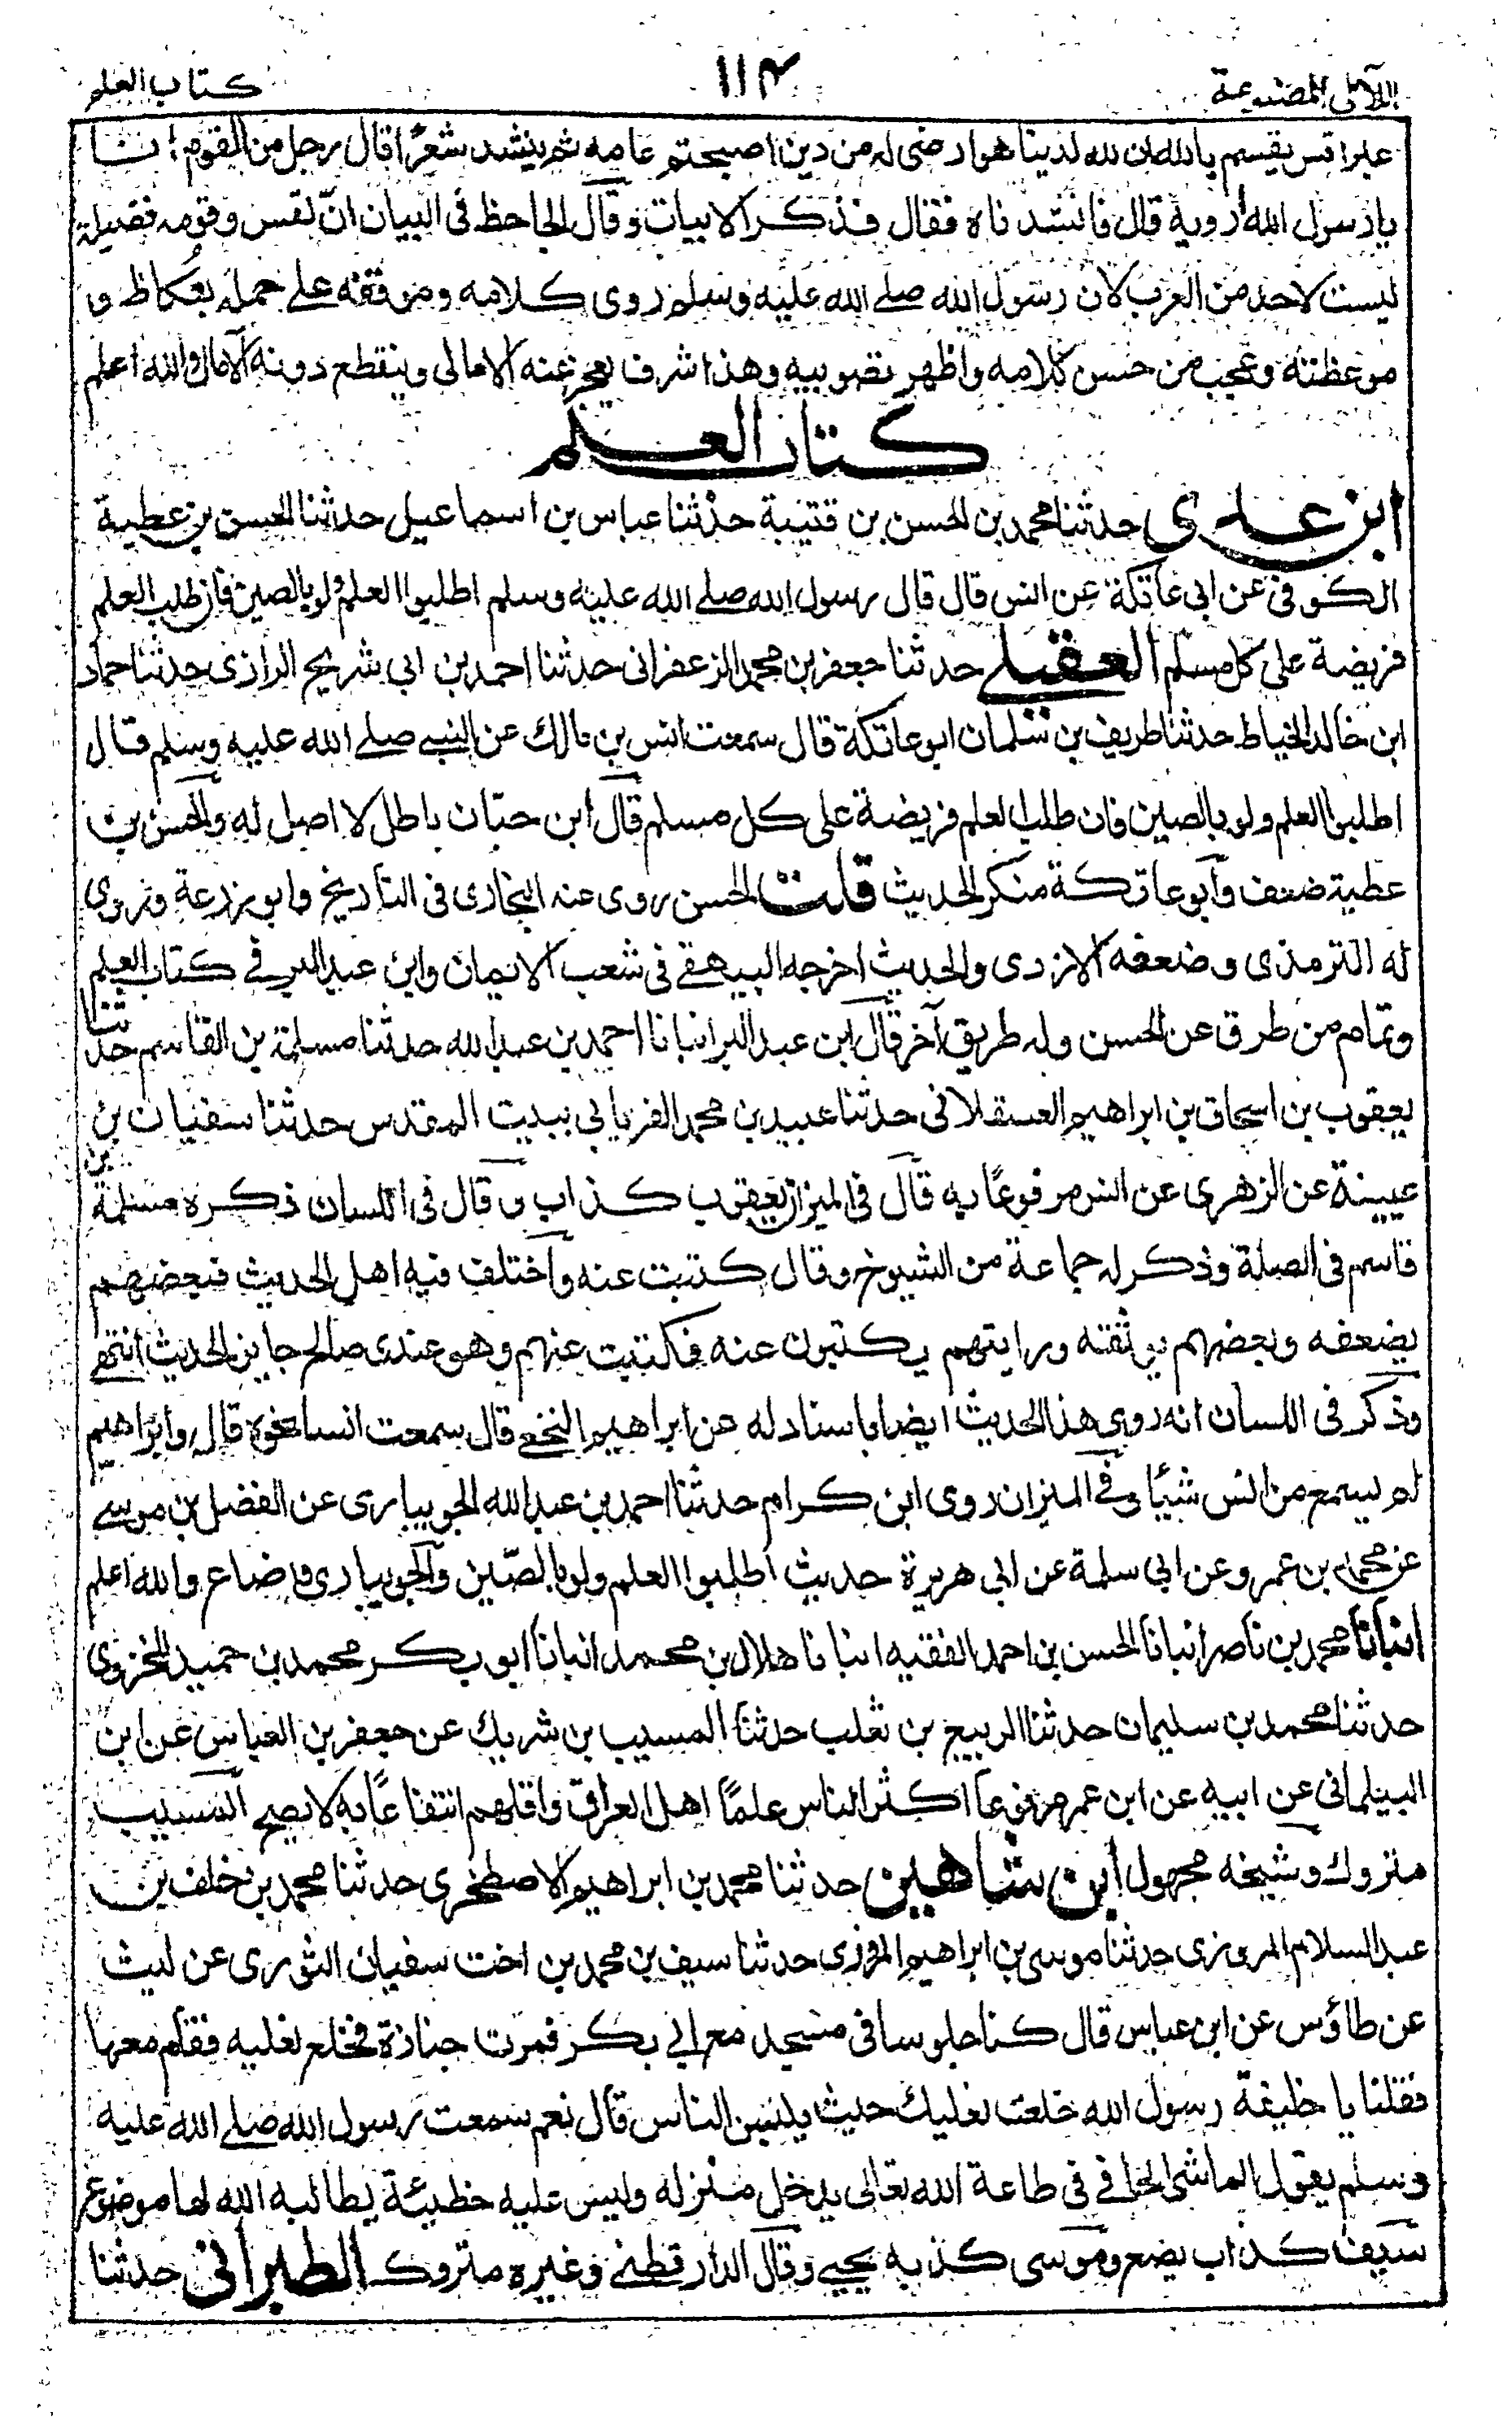 اللآلى المصنوعة ١١٤ كتاب العلم
قس يقسم بالله ان لله لدينا هو ارضى له من دين اصبحتم عامه ثم ينشد شعرًا قال رجل من القوم انا
يا رسول الله أرويه قال فانشدناه فقال فذكر الابيات وقال الجاحظ فى البيان انّ لقس وقومه فضيلة
ليست لاحد من العرب لان رسول الله صلے الله عليه وسلم روى كلامه وموقفه علے جمله بعُكاظ و
موعظته وعجب من حسن كلامه واظهر تصويبه وهذا شرف يعجز عنه الامالى وينقطع دونه الآمال والله اعلم
كتاب العلم
ابن عدى حدثنا محمد بن الحسن بن قتيبة حدثنا عباس بن اسماعيل حدثنا الحسن بن عطية
الكوفى عن ابى عاتكة عن انس قال قال رسول الله صلے الله عليه وسلم اطلبوا العلم ولو بالصين فان طلب العلم
فريضة على كل مسلم العقيلے حدثنا جعفر بن محمد الزعفرانى حدثنا احمد بن ابى شريح الرازى حدثنا حماد
ابن خالد الخياط حدثنا طريف بن سلمان ابو عاتكة قال سمعت انس بن مالك عن النبے صلے الله عليه وسلم قال
اطلبوا العلم ولو بالصين فان طلب العلم فريضة على كل مسلم قال ابن حبّان باطل لا اصل له والحسن بن
عطية ضعف وابو عاتكة منكر الحديث قلت الحسن روى عنه البخارى فى التاريخ وابو زرعة وروى
له الترمذى وضعفه الازدى والحديث اخرجه البيهقے فى شعب الايمان وابن عبد البر فے كتاب العلم
وتمام من طرق عن الحسن وله طريق آخر قال ابن عبد البر انبانا احمد بن عبد الله حدثنا مسلمة بن القاسم حدثنا
يعقوب بن اسحاق بن ابراهيم العسقلانى حدثنا عبيد بن محمد الفريابى ببيت المقدس حدثنا سفيان بن
عيينة عن الزهرى عن انس مرفوعًا به قال فى الميزان يعقوب كذاب وقال فى اللسان ذكره مسلمة بن
قاسم فى الصلة وذكر له جماعة من الشيوخ وقال كتبت عنه واختلف فيه اهل الحديث فبعضهم
يضعفه وبعضهم يوثقه ورايتهم يكتبون عنه فكتبت عنهم وهو عندى صالح جايز الحديث انتهے
وذكر فى اللسان انه روى هذا الحديث ايضا باسناد له عن ابراهيم النخعے قال سمعت انسا نحوه قال وابراهيم
لم يسمع من انس شيئا وفے الميزان روى ابن كرام حدثنا احمد بن عبد الله الجويبارى عن الفضل بن موسے
عن محمد بن عمرو عن ابى سلمة عن ابى هريرة حديث اطلبوا العلم ولو بالصّين والجويبارى وضاع والله اعلم
انبانا محمد بن ناصر انبانا الحسن بن احمد الفقيه انبانا هلال بن محمد انبانا ابو بكر محمد بن حميد المخزومى
حدثنا محمد بن سليمان حدثنا الربيع بن ثعلب حدثنا المسيب بن شريك عن جعفر بن العباس عن ابن
البيلمانى عن ابيه عن ابن عمر مرفوعا اكثر الناس علمًا اهل العراق واقلهم انتفاعًا به لا يصح المسيب
متروك وشيخه مجهول ابن شاهين حدثنا محمد بن ابراهيم الاصطخرى حدثنا محمد بن خلف بن
عبد السلام المروزى حدثنا موسى بن ابراهيم المروزى حدثنا سيف بن محمد بن اخت سفيان الثورى عن ليث
عن طاؤس عن ابن عباس قال كنا جلوسا فى مسجد مع ابى بكر فمرت جنازة فخلع نعليه فقام معها
فقلنا يا خليفة رسول الله خلعت نعليك حيث يلبس الناس قال نعم سمعت رسول الله صلے الله عليه
وسلم يقول الماشى الحافے فى طاعة الله تعالى يدخل منزله وليس عليه خطيئة يطالبه الله لها موضوع
سيف كذاب يضع وموسى كذبه يحيے وقال الدار قطنے وغيره متروك الطبرانى حدثنا